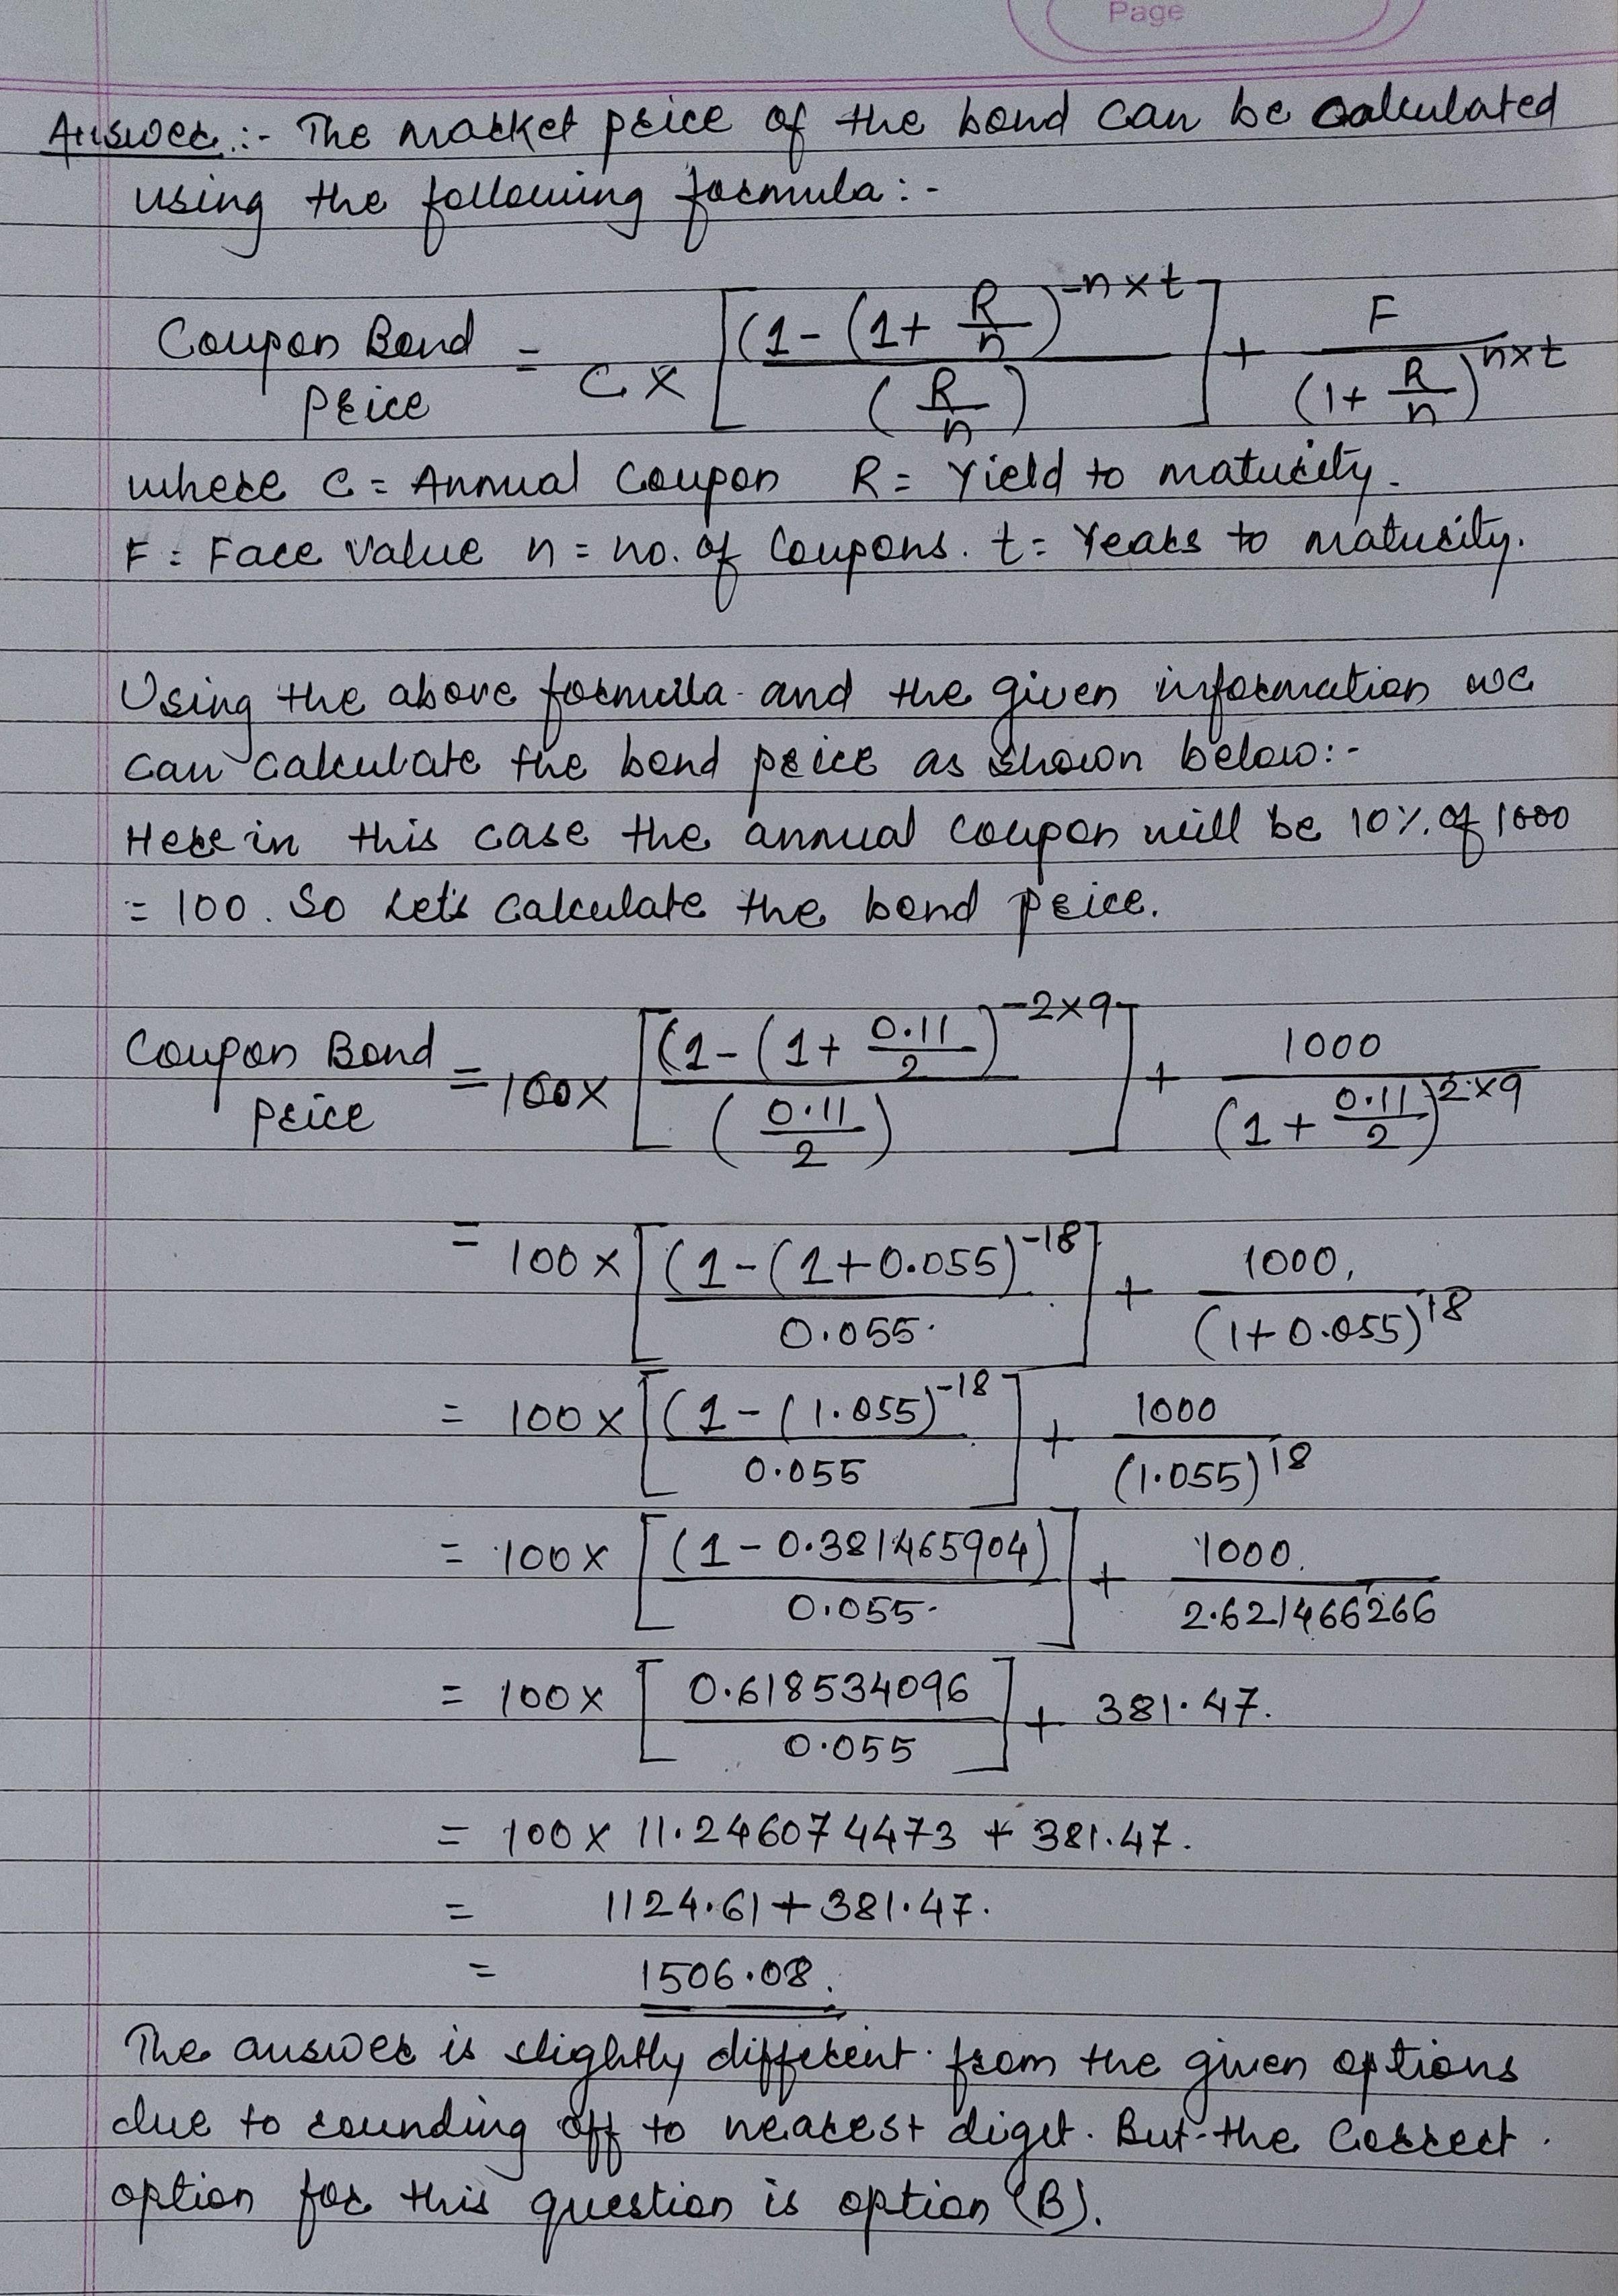 Page
Answer :- The market price of the bond can be calculated
using the following formula :-
Coupon Bond Price = C × [(1 - (1 + R/n)^-n×t / (R/n)] + F / (1 + R/n)^n×t
where C = Annual Coupon R = Yield to maturity.
F = Face Value n = no. of Coupons. t = Years to maturity.
Using the above formula and the given information we
can calculate the bond price as shown below :-
Here in this case the annual coupon will be 10% of 1000
= 100. So Let's calculate the bond price.
Coupon Bond Price = 100 × [(1 - (1 + 0.11/2)^-2×9 / (0.11/2)] + 1000 / (1 + 0.11/2)^2×9
= 100 × [(1 - (1 + 0.055)^-18 / 0.055.] + 1000, / (1 + 0.055)^18
= 100 × [(1 - (1.055)^-18 / 0.055] + 1000 / (1.055)^18
= 100 × [(1 - 0.381465904) / 0.055.] + 1000. / 2.621466266
= 100 × [0.618534096 / 0.055] + 381.47.
= 100 × 11.246074473 + 381.47.
= 1124.61 + 381.47.
= 1506.08.
The answer is slightly different from the given options
due to rounding off to nearest digit. But the Correct
option for this question is option (B).